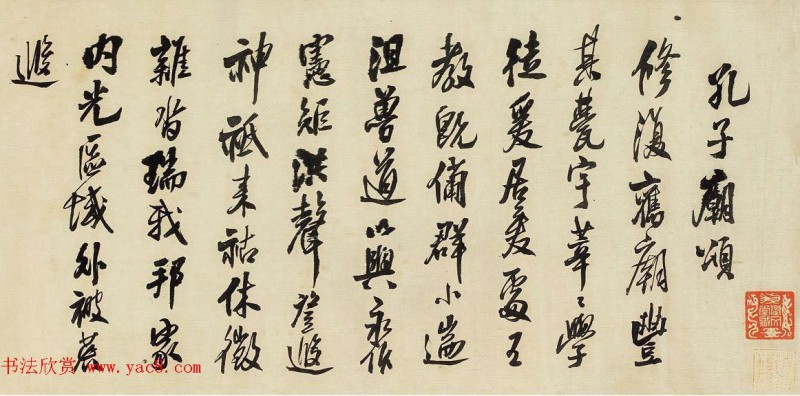 孔子廟頌
修復舊廟豐
其甍宇莘〻學
徒爰居爰處王
教既備群小遄
沮魯道以興永作
憲矩洪聲登遐
神祇来祜休徵
雜沓瑞我邦家
内光區域外被荒
遐
书法欣赏 www.yac8.com